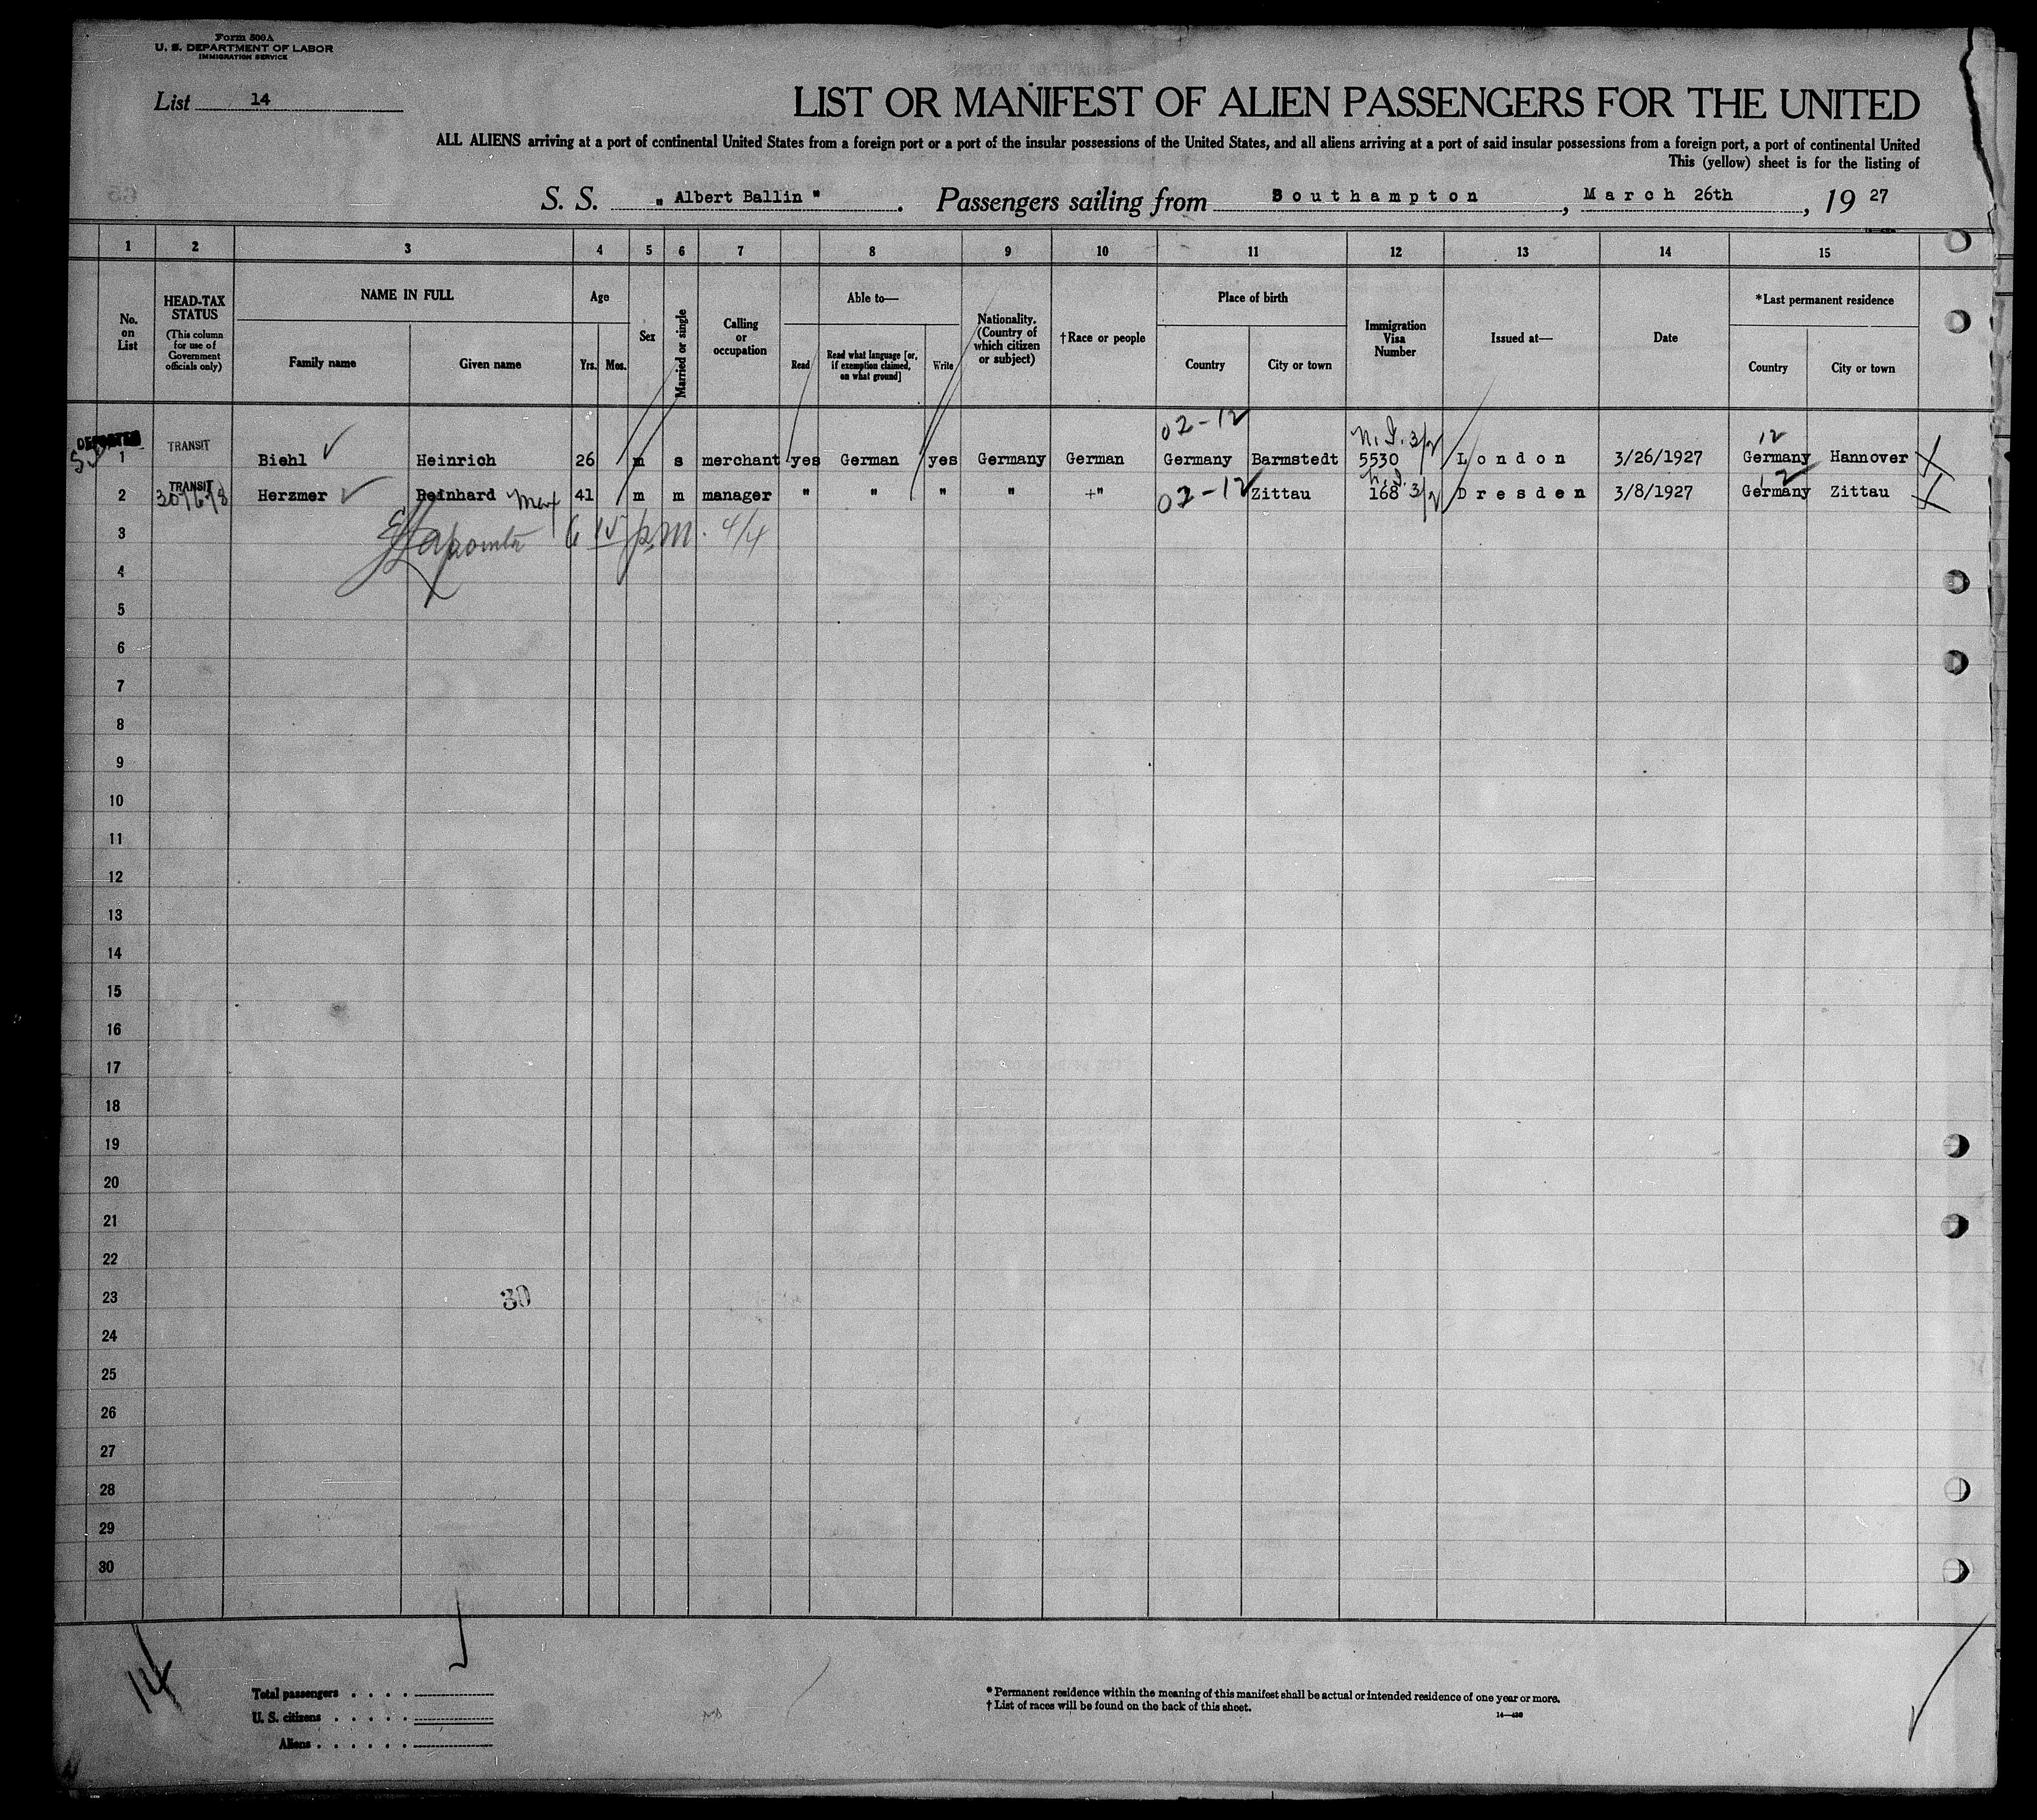 Form 500A
U. S. DEPARTMENT OF LABOR
IMMIGRATION SERVICE
List 14
LIST OR MANIFEST OF ALIEN PASSENGERS FOR THE UNITED
ALL ALIENS arriving at a port of continental United States from a foreign port or a port of the insular possessions of the United States, and all aliens arriving at a port of said insular possessions from a foreign port, a port of continental United
This (yellow) sheet is for the listing of
S. S. " Albert Ballin " . Passengers sailing from Southampton , March 26th , 19 27
1 2 3 4 5 6 7 8 9 10 11 12 13 14 15
No. on List
HEAD-TAX STATUS
(This column for use of Government officials only)
NAME IN FULL
Family name
Given name
Age
Yrs.
Mos.
Sex
Married or single
Calling or occupation
Able to—
Read
Read what language [or, if exemption claimed, on what ground]
Write
Nationality. (Country of which citizen or subject)
†Race or people
Place of birth
Country
City or town
Immigration Visa Number
Issued at—
Date
*Last permanent residence
Country
City or town
DEPORTED 02-12 12
1 TRANSIT Biehl Heinrich 26 m s merchant yes German yes Germany German Germany Barmstedt 5530 London 3/26/1927 Germany Hannover
2 TRANSIT Herzmer Reinhard 41 m m manager " " " " " 02-12 Zittau 168 Dresden 3/8/1927 Germany Zittau
3 6 15 p.m. 4/4
4
5
6
7
8
9
10
11
12
13
14
15
16
17
18
19
20
21
22
23 30
24
25
26
27
28
29
30
14
Total passengers . . . .
U. S. citizens . . . . .
Aliens . . . . . .
* Permanent residence within the meaning of this manifest shall be actual or intended residence of one year or more.
† List of races will be found on the back of this sheet.
14—430